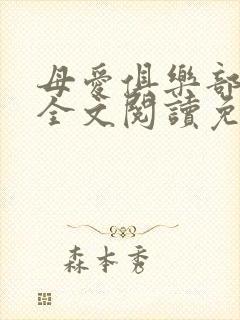 母愛俱樂部
全文閱讀免
森本秀